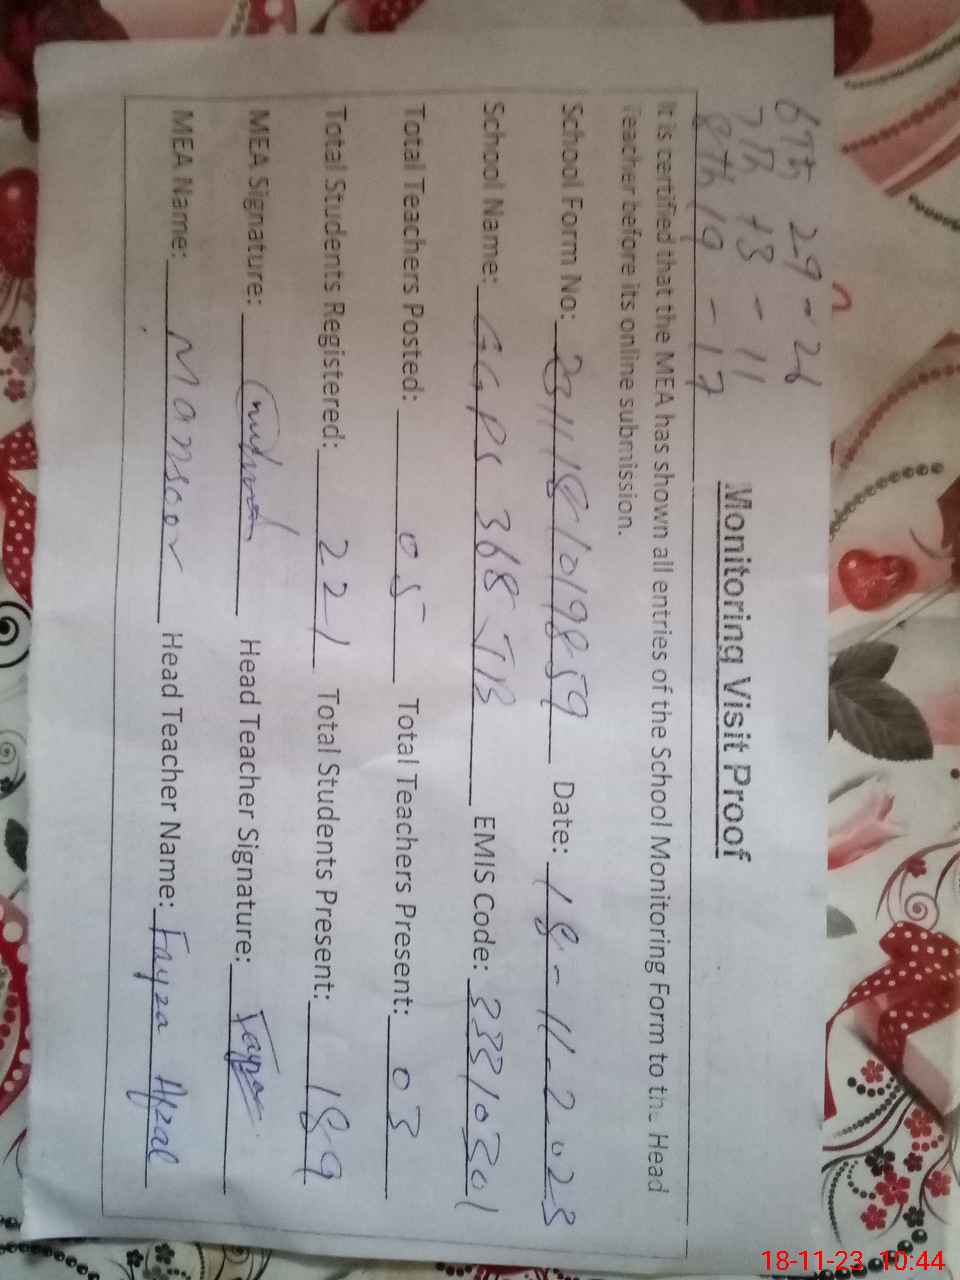 6Th 29 - 26
7Th 13 - 11
8Th 19 - 17
Monitoring Visit Proof
It is certified that the MEA has shown all entries of the School Monitoring Form to the Head
Teacher before its online submission.
School Form No: 2311181019859 Date: 18-11-2023
School Name: GGPS 368-JB EMIS Code: 33310301
Total Teachers Posted: 05 Total Teachers Present: 03
Total Students Registered: 221 Total Students Present: 189
MEA Signature: Head Teacher Signature: Fayza
MEA Name: Mansoor Head Teacher Name: Fayza Afzal
18-11-23 10:44